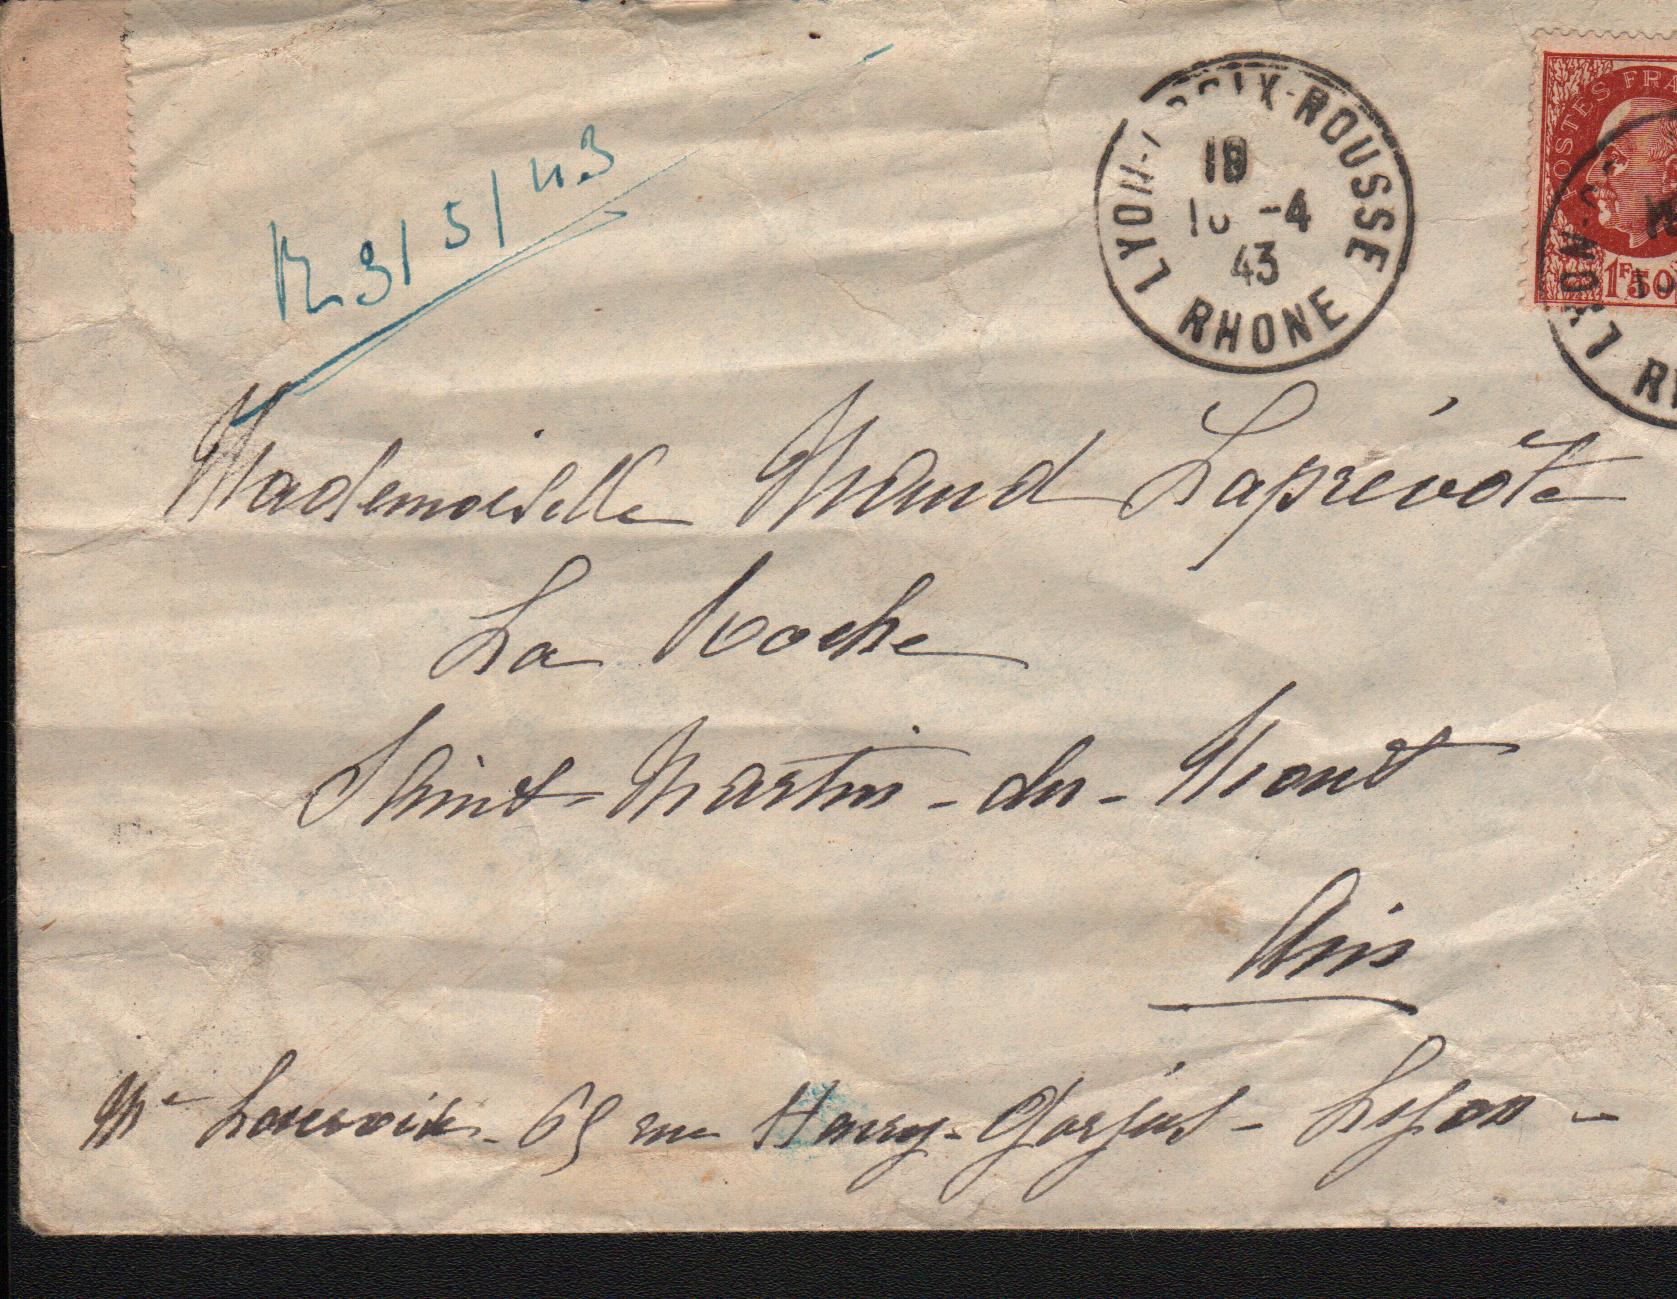 LYON-CROIX-ROUSSE
18
10 -4
43
RHONE
POSTES FRA
1F50
LYON
R 3/5/43
Mademoiselle Maud Laprévôte
La Roche
Saint-Martin-du-Mont
Ain
Me - 69 rue Henry-Gorjus - Lyon -